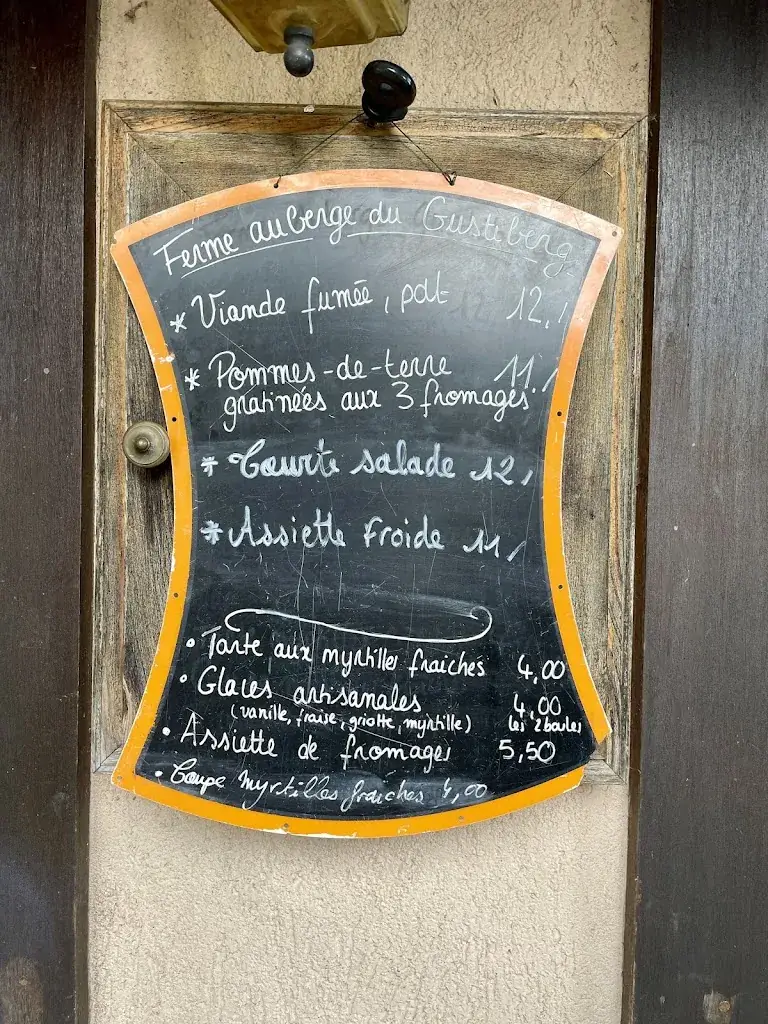 Ferme auberge du Gustiberg
* Viande fumée, pdt 12,
* Pommes-de-terre 11,
gratinées aux 3 fromages
* Tourte salade 12,
* Assiette froide 11,
• Tarte aux myrtilles fraiches 4,00
• Glaces artisanales 4,00
(vanille, fraise, griotte, myrtille) les 2 boules
• Assiette de fromages 5,50
• Coupe myrtilles fraiches 4,00